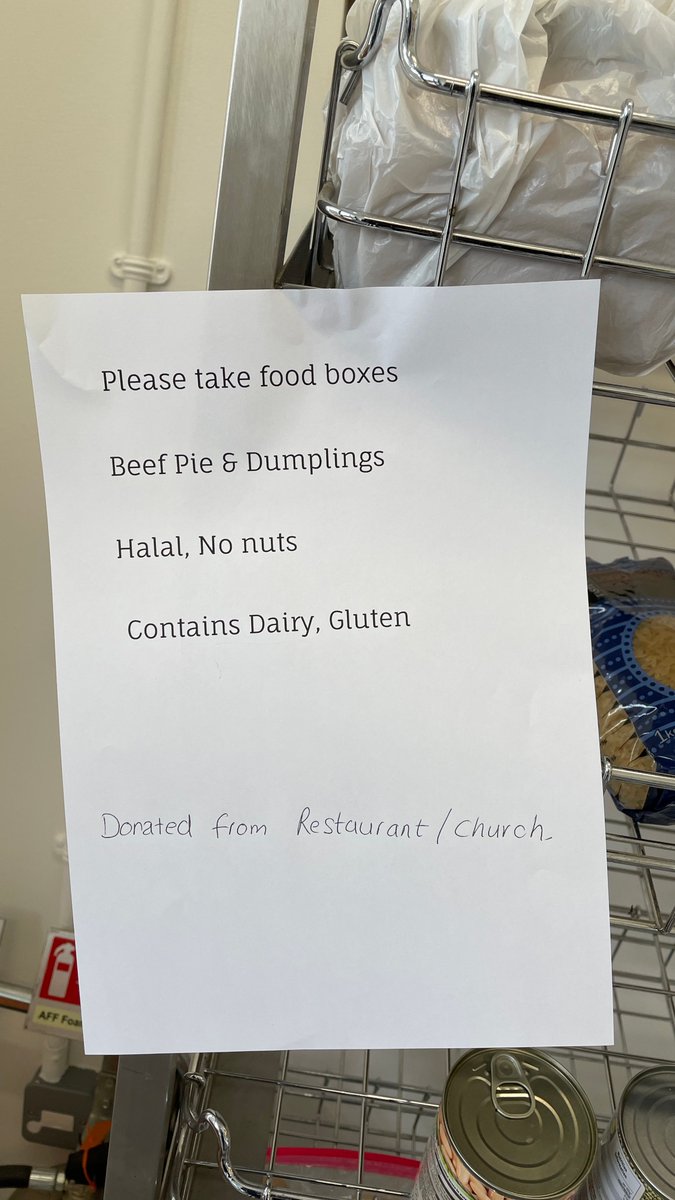 Please take food boxes
Beef Pie & Dumplings
Halal, No nuts
Contains Dairy, Gluten
Donated from Restaurant/Church
AFF
1k